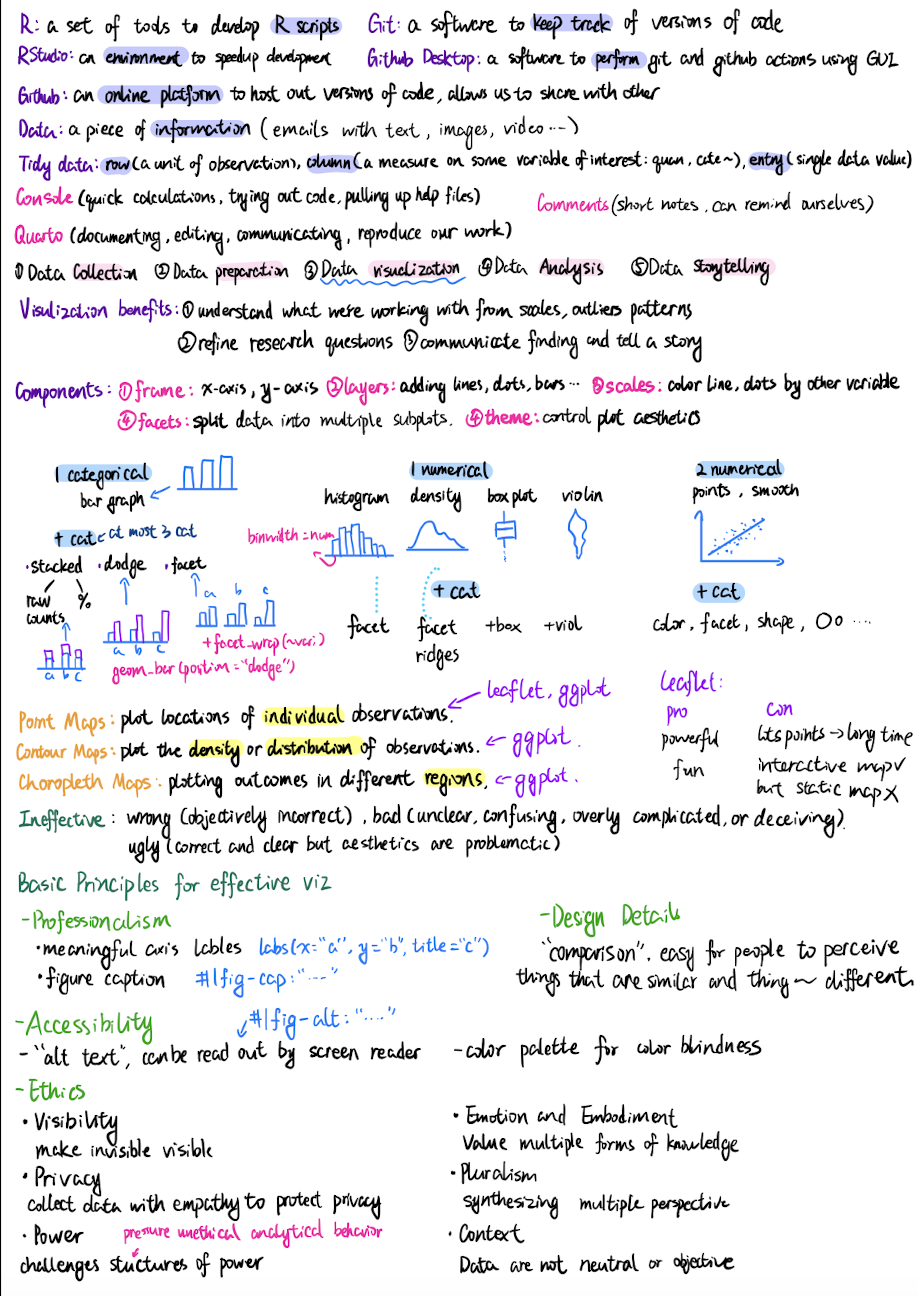 R: a set of tools to develop R scripts
Git: a software to keep track of versions of code
RStudio: an environment to speedup development
Github Desktop: a software to perform git and github actions using GUI
Github: an online platform to host out versions of code, allows us to share with other
Data: a piece of information (emails with text, images, video ...)
Tidy data: row (a unit of observation), column (a measure on some variable of interest: quan, cate~), entry (single data value)
Console (quick calculations, trying out code, pulling up help files)
Comments (short notes, can remind ourselves)
Quarto (documenting, editing, communicating, reproduce our work)
① Data Collection ② Data preparation ③ Data visualization ④ Data Analysis ⑤ Data Storytelling
Visulization benefits: ① understand what we're working with from scales, outliers patterns
② refine research questions ③ communicate finding and tell a story
Components: ① frame: x-axis, y-axis ② layers: adding lines, dots, bars ... ③ scales: color line, dots by other variable
④ facets: split data into multiple subplots. ④ theme: control plot aesthetics
1 categorical
bar graph
+ cat at most 3 cat
· stacked · dodge · facet
raw counts %
a b c
a b c
a b c
+facet_wrap(~vari)
geom_bar(position = "dodge")
1 numerical
histogram density boxplot violin
binwidth = num
+ cat
facet facet +box +viol
ridges
2 numerical
points, smooth
+ cat
color, facet, shape, Oo ....
Point Maps: plot locations of individual observations. ← leaflet, ggplot
Contour Maps: plot the density or distribution of observations. ← ggplot.
Choropleth Maps: plotting outcomes in different regions. ← ggplot.
leaflet:
pro con
powerful lots points → long time
fun interactive map v
but static map X
Ineffective: wrong (objectively incorrect), bad (unclear, confusing, overly complicated, or deceiving).
ugly (correct and clear but aesthetics are problematic)
Basic Principles for effective viz
- Professionalism
· meaningful axis lables labs(x="a", y="b", title="c")
· figure caption #|fig-cap: "...."
- Design Details
"comparison". easy for people to perceive
things that are similar and thing ~ different.
- Accessibility #|fig-alt: "...."
- "alt text", can be read out by screen reader
- color palette for color blindness
- Ethics
· Visibility
make invisible visible
· Privacy
collect data with empathy to protect privacy
· Power pressure unethical analytical behavior
challenges stuctures of power
· Emotion and Embodiment
Value multiple forms of knowledge
· Pluralism
synthesizing multiple perspective
· Context
Data are not neutral or objective